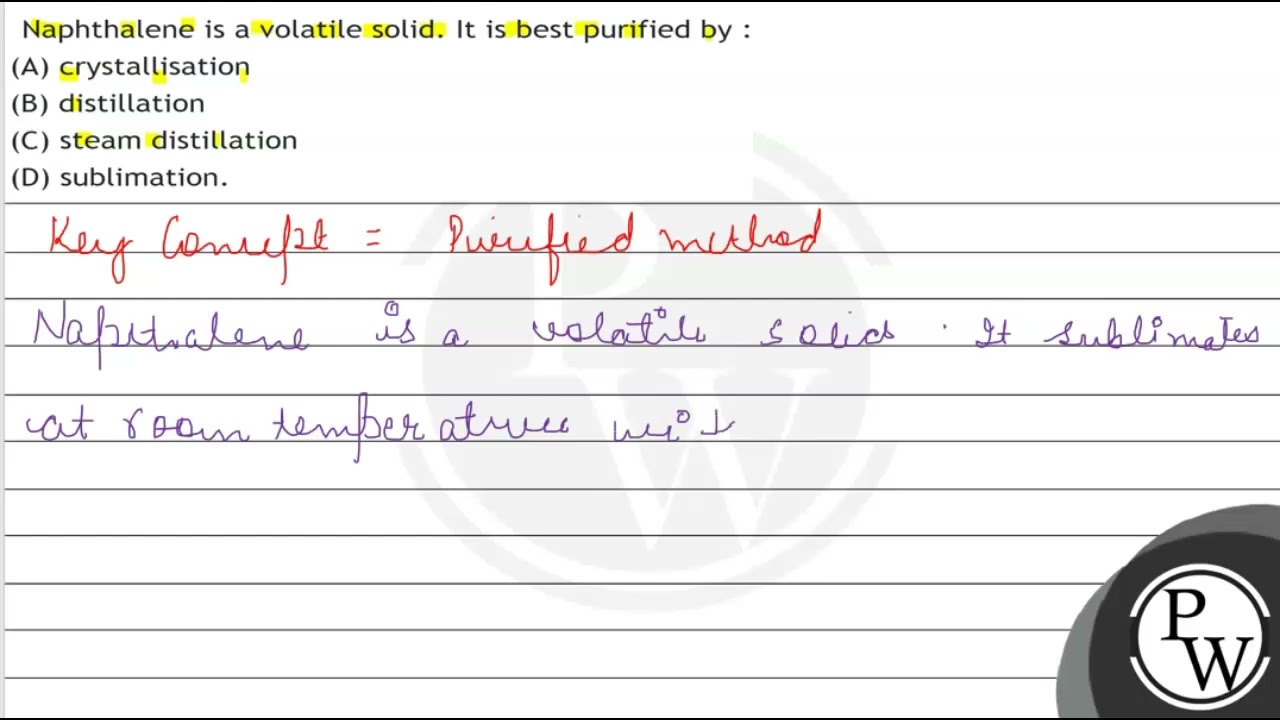 Naphthalene is a volatile solid. It is best purified by :
(A) crystallisation
(B) distillation
(C) steam distillation
(D) sublimation.
Key Concept = Purified method
Napthalene is a volatile solid . It sublimates
at room temperature
PW
PW